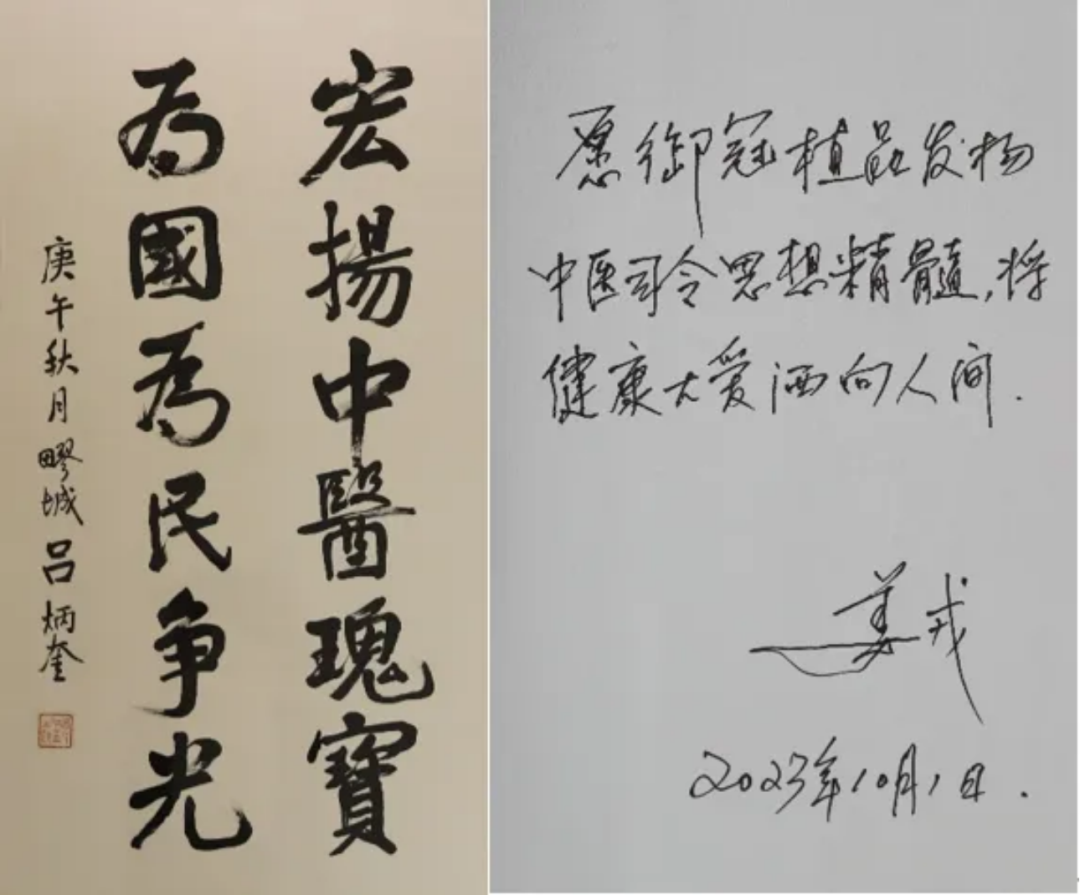 宏揚中醫瑰寶
為國為民争光
庚午秋月疁城吕炳奎
愿御冠植品发杨
中医司令思想精髓,将
健康大爱洒向人间.
姜戎
2023年10月1日.